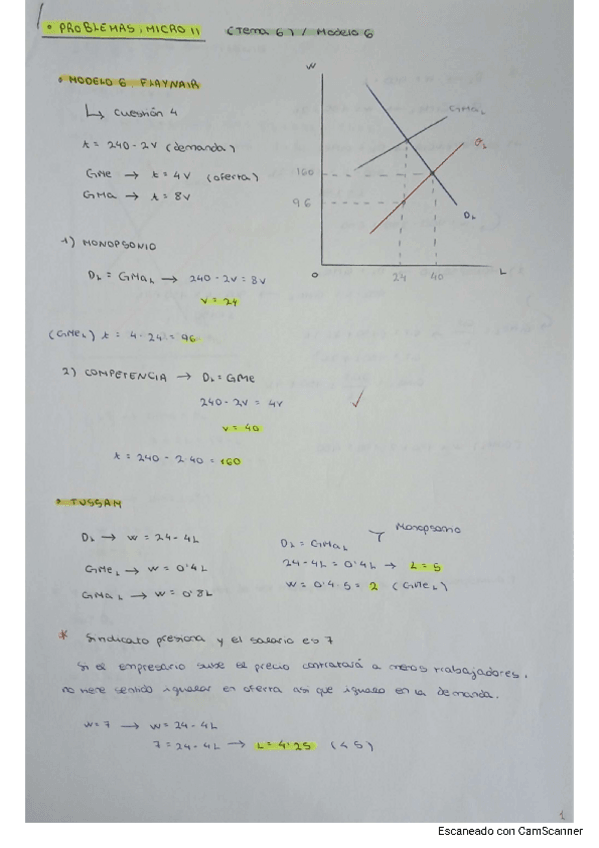 • PROBLEMAS, MICRO II (Tema 6) / Modelo 6
• MODELO 6 FLAYNAIR
↳ Cuestión 4
t = 240 - 2V (demanda)
GMe → t = 4V (oferta)
GMa → t = 8V
W
GMa L
O L
160
96
D L
0
24
40
L
1) MONOPSONIO
D L = GMa L → 240 - 2V = 8V
V = 24
(GMe L) t = 4 · 24 = 96
2) COMPETENCIA → D L = GMe
240 - 2V = 4V
V = 40
t = 240 - 2 · 40 = 160
• TUSSAM
D L → W = 24 - 4L
GMe L → W = 0'4L
GMa L → W = 0'8L
Monopsonio
D L = GMa L
24 - 4L = 0'4L → L = 5
W = 0'4 · 5 = 2 (GMe L)
* Sindicato presiona y el salario es 7
Si el empresario sube el precio contratará a menos trabajadores.
no tiene sentido igualar en oferta así que igualo en la demanda.
W = 7 → W = 24 - 4L
7 = 24 - 4L → L = 4'25 (< 5)
1
Escaneado con CamScanner